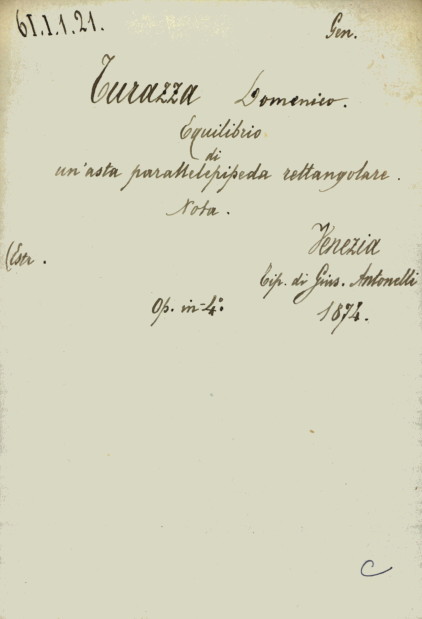 61.I.1.21.
Gen.
Turazza Domenico.
Equilibrio
di
un'asta parallelepipeda rettangolare.
Nota.
Venezia
(Estr.
Tip. di Gius. Antonelli
Op. in-4º
1874.
C